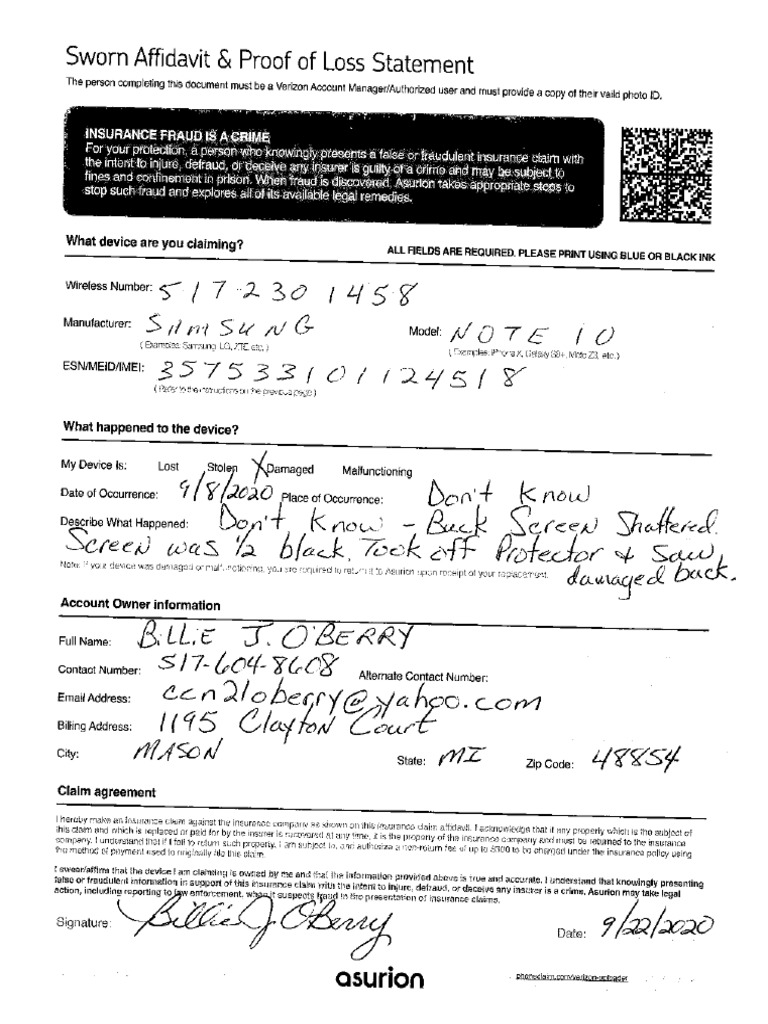 Sworn Affidavit & Proof of Loss Statement
The person completing this document must be a Verizon Account Manager/Authorized user and must provide a copy of their valid photo ID.
INSURANCE FRAUD IS A CRIME
For your protection, a person who knowingly presents a false or fraudulent insurance claim with
the intent to injure, defraud, or deceive any insurer is guilty of a crime and may be subject to
fines and confinement in prison. When fraud is discovered, Asurion takes appropriate steps to
stop such fraud and explores all of its available legal remedies.
What device are you claiming?
ALL FIELDS ARE REQUIRED. PLEASE PRINT USING BLUE OR BLACK INK
Wireless Number: 517 230 1458
Manufacturer: SAMSUNG Model: NOTE 10
( Examples: Samsung, LG, ZTE, etc. ) ( Examples: iPhone X, Galaxy S8+, Moto Z3, etc. )
ESN/MEID/IMEI: 357533101124518
( Refer to the instructions on the previous page )
What happened to the device?
My Device Is: Lost Stolen X Damaged Malfunctioning
Date of Occurrence: 9/8/2020 Place of Occurrence: Don't Know
Describe What Happened: Don't Know - Back Screen Shattered.
Screen was 1/2 black. Took off Protector & Saw
damaged back.
Note: If your device was damaged or malfunctioning, you are required to return it to Asurion upon receipt of your replacement.
Account Owner information
Full Name: BILLIE J. O'BERRY
Contact Number: 517-604-8608 Alternate Contact Number:
Email Address: ccn2loberry@yahoo.com
Billing Address: 1195 Clayton Court
City: MASON State: MI Zip Code: 48854
Claim agreement
I hereby make an insurance claim against the insurance company as shown on this insurance claim affidavit. I acknowledge that if any property which is the subject of
this claim and which is replaced or paid for by the insurer is recovered at any time, it is the property of the insurance company and must be returned to the insurance
company. I understand that if I fail to return such property, I am subject to, and authorize a non-return fee of up to $500 to be charged under the insurance policy using
the method of payment used to originally file this claim.
I swear/affirm that the device I am claiming is owned by me and that the information provided above is true and accurate. I understand that knowingly presenting
false or fraudulent information in support of this insurance claim with the intent to injure, defraud, or deceive any insurer is a crime. Asurion may take legal
action, including reporting to law enforcement, when it suspects fraud in the presentation of insurance claims.
Signature: Billie J O'Berry Date: 9/22/2020
asurion
phoneclaim.com/verizon-uploader